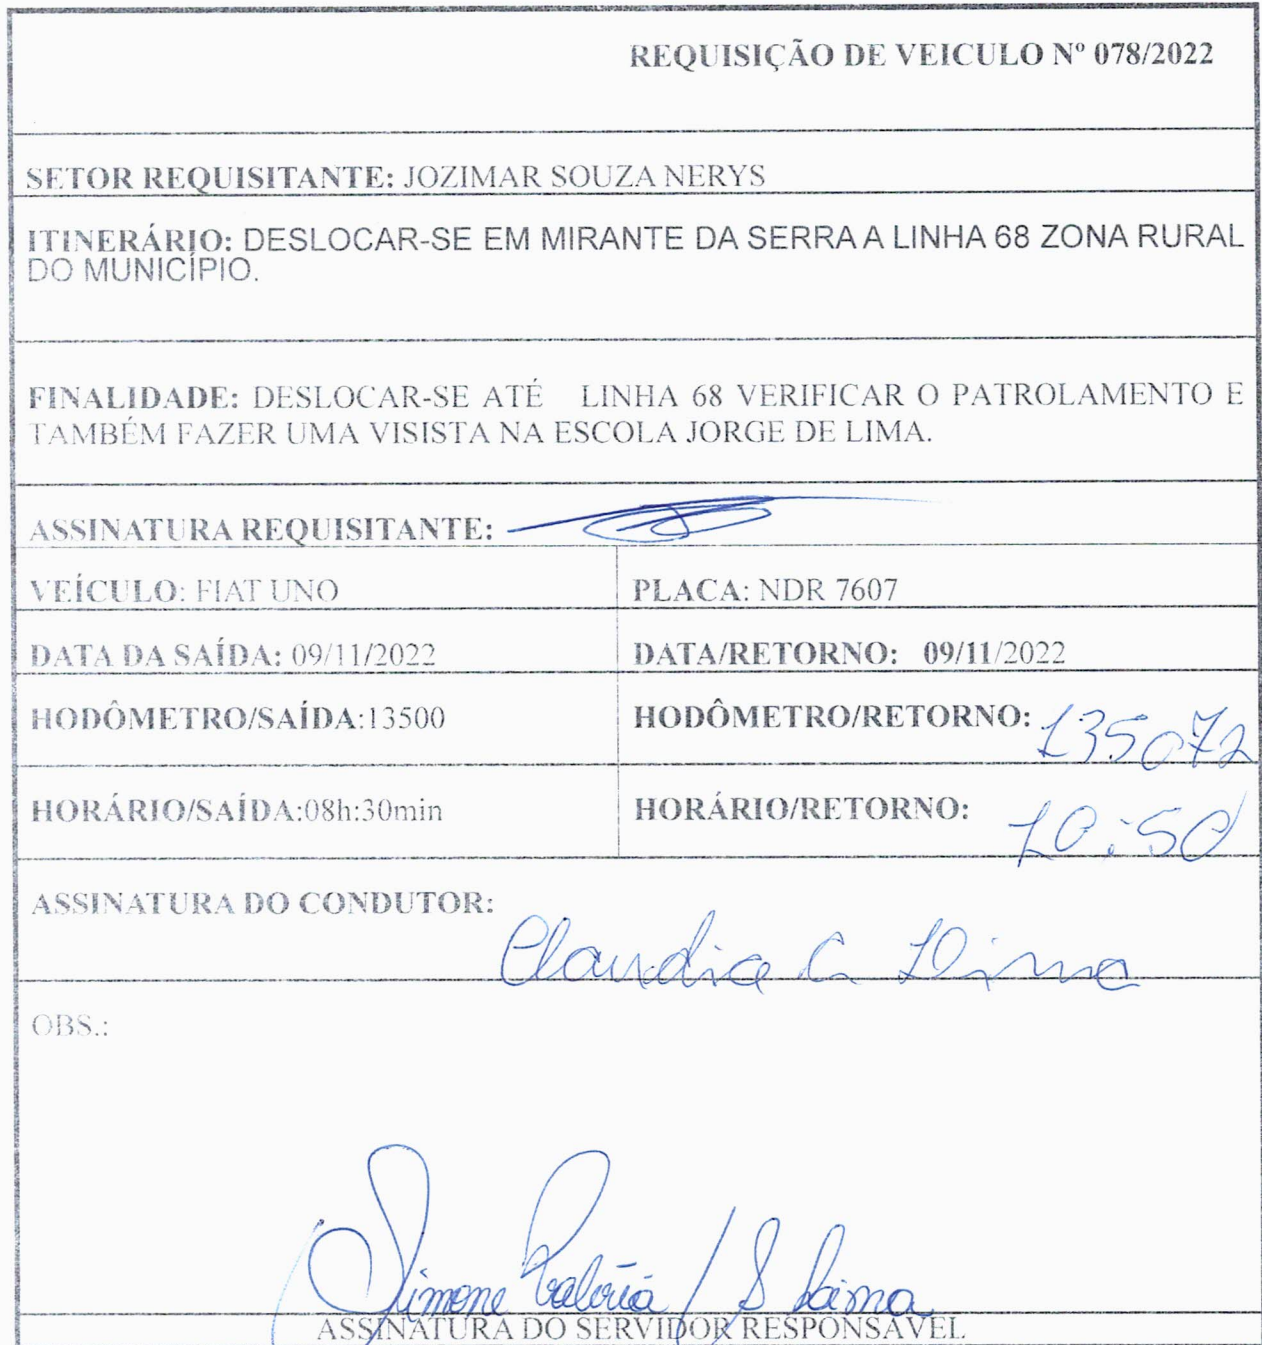 REQUISIÇÃO DE VEICULO Nº 078/2022
SETOR REQUISITANTE: JOZIMAR SOUZA NERYS
ITINERÁRIO: DESLOCAR-SE EM MIRANTE DA SERRA A LINHA 68 ZONA RURAL
DO MUNICÍPIO.
FINALIDADE: DESLOCAR-SE ATÉ LINHA 68 VERIFICAR O PATROLAMENTO E
TAMBÉM FAZER UMA VISISTA NA ESCOLA JORGE DE LIMA.
ASSINATURA REQUISITANTE:
VEÍCULO: FIAT UNO PLACA: NDR 7607
DATA DA SAÍDA: 09/11/2022 DATA/RETORNO: 09/11/2022
HODÔMETRO/SAÍDA:13500 HODÔMETRO/RETORNO: 135072
HORÁRIO/SAÍDA:08h:30min HORÁRIO/RETORNO: 10:50
ASSINATURA DO CONDUTOR: Claudia C.
OBS.:
Simone
ASSINATURA DO SERVIDOR RESPONSÁVEL